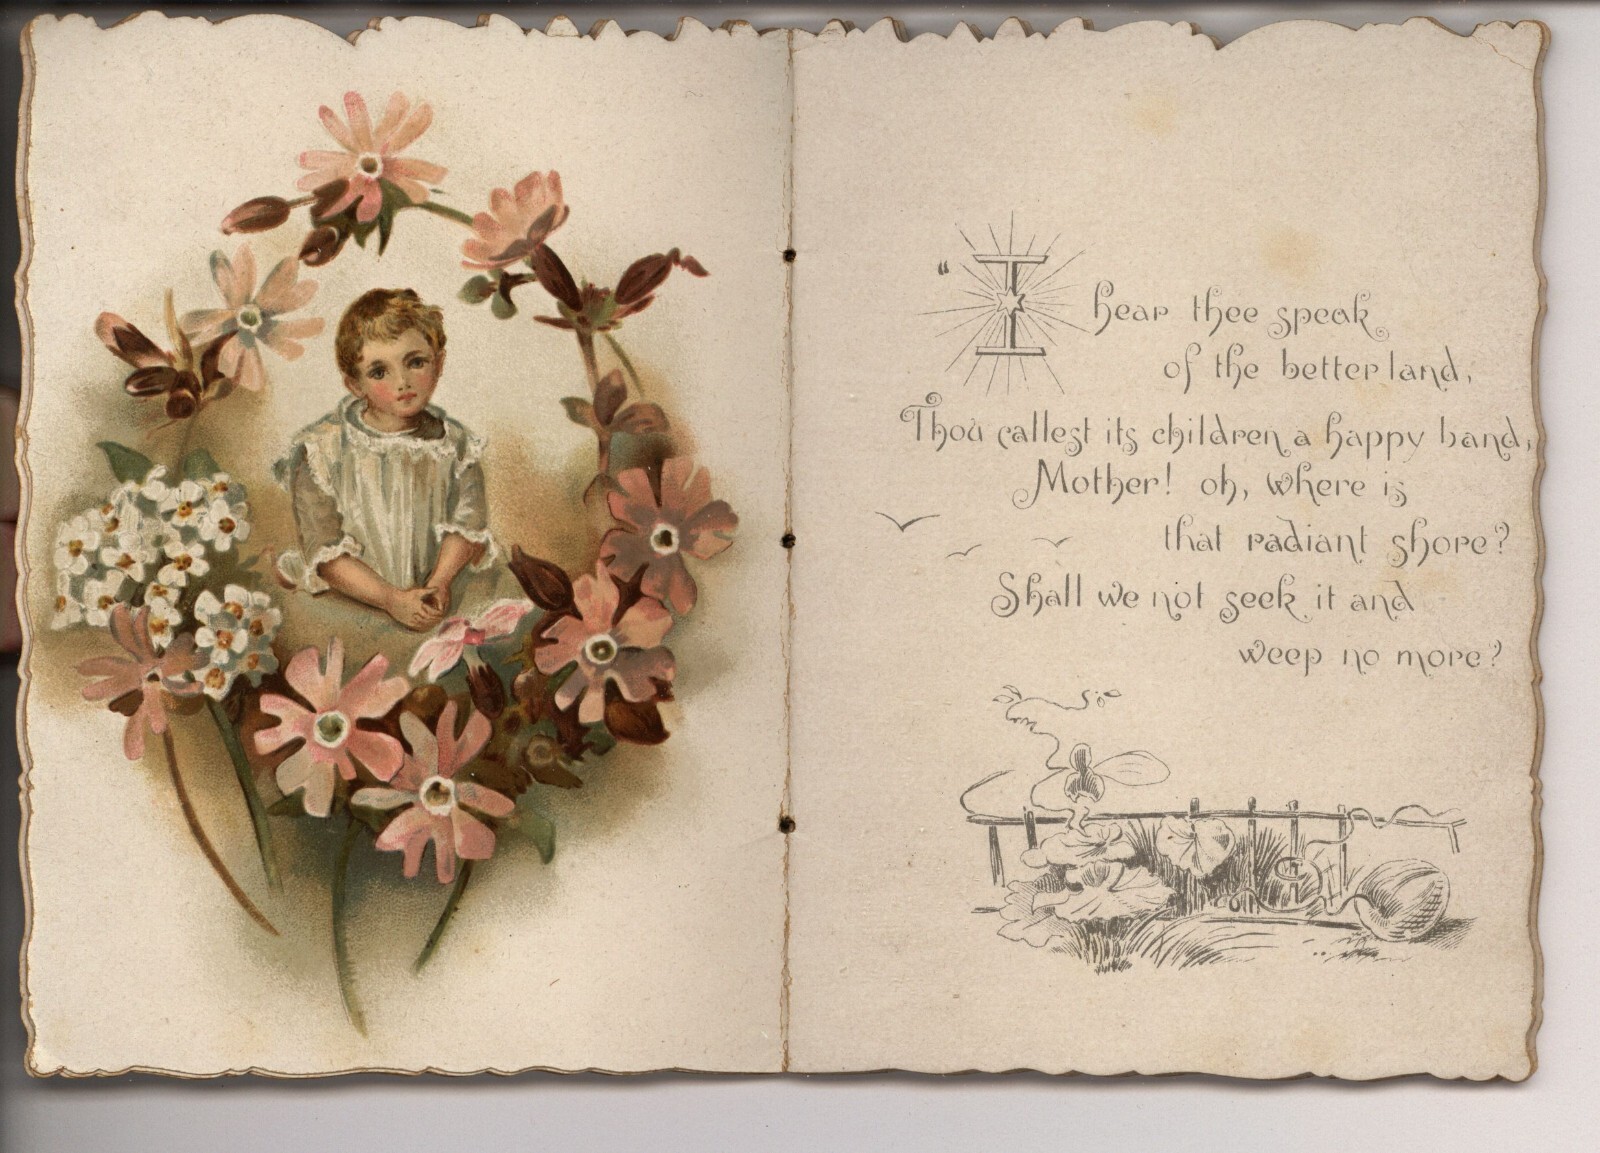 “I hear thee speak
of the better land,
Thou callest its children a happy band;
Mother! oh, where is
that radiant shore?
Shall we not seek it and
weep no more?